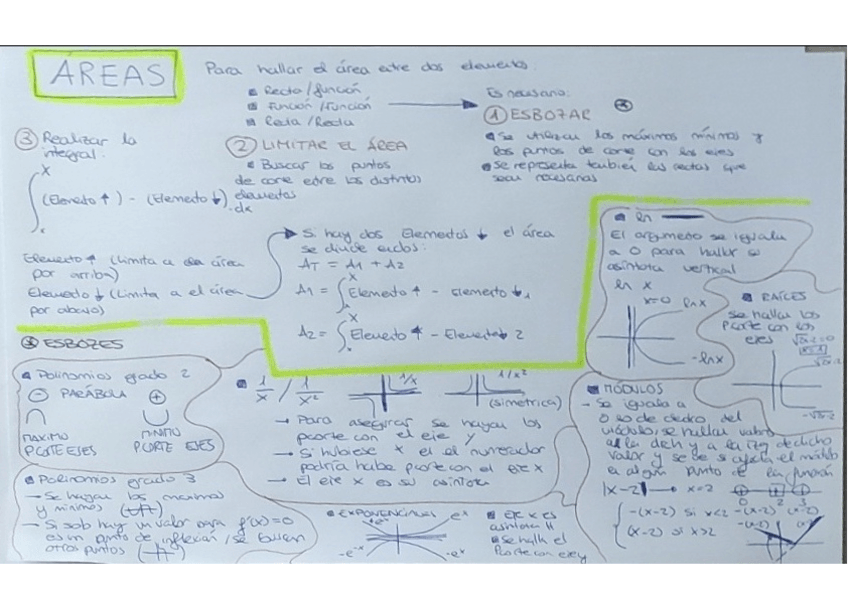 AREAS
Para hallar el área entre dos elementos.
Recta/función
Función/función
Recta/Recta
Es necesario:
① ESBOZAR
Se utilizan los máximos mínimos y
los puntos de corte con los ejes
Se representa también las rectas que
sean necesarias
② LIMITAR EL ÁREA
Buscar los puntos
de corte entre los distintos
elementos
③ Realizar la
integral.
∫ (Elemento ↑) - (Elemento ↓)
·dx
Elemento ↑ (Limita a el área
por arriba)
Elemento ↓ (Limita a el área
por abajo)
Si hay dos Elementos ↓ el área
se divide en dos:
AT = A1 + A2
A1 = ∫ Elemento ↑ - Elemento ↓ 1
A2 = ∫ Elemento ↑ - Elemento ↓ 2
ln
El argumento se iguala
a 0 para hallar su
asíntota vertical
ln x
x=0 lnx
-lnx
RAÍCES
Se hallan los
Pcorte con los
ejes
ESBOZES
Polinomios grado 2
⊖ PARÁBOLA ⊕
MAXIMO
PCORTE EJES
MINIMO
PCORTE EJES
Polinomios grado 3
→ Se hayan los maximos
y minimos
→ Si solo hay un valor para f'(x)=0
es un punto de inflexion / se buscan
otros puntos
1/x / 1/x²
1/x
1/x²
(simetrica)
→ Para asegurar se hayan los
pcorte con el eje y
→ Si hubiese x en el numerador
podría haber pcorte con el eje x
→ El eje x es su asintota
EXPONENCIAL
e^x
-e^-x
-e^x
Eje x es
asintota H
Se halla el
Pcorte con eje y
MÓDULOS
→ Se iguala a
0 lo de dentro del
módulo, se hallan valores
a la dch y a la izq de dicho
valor y se ve si afecta el módulo
en algún punto de la función
|x-2| → x=2
-(x-2) si x<2
(x-2) si x>2
0 2 3
-(x-2) (x-2)